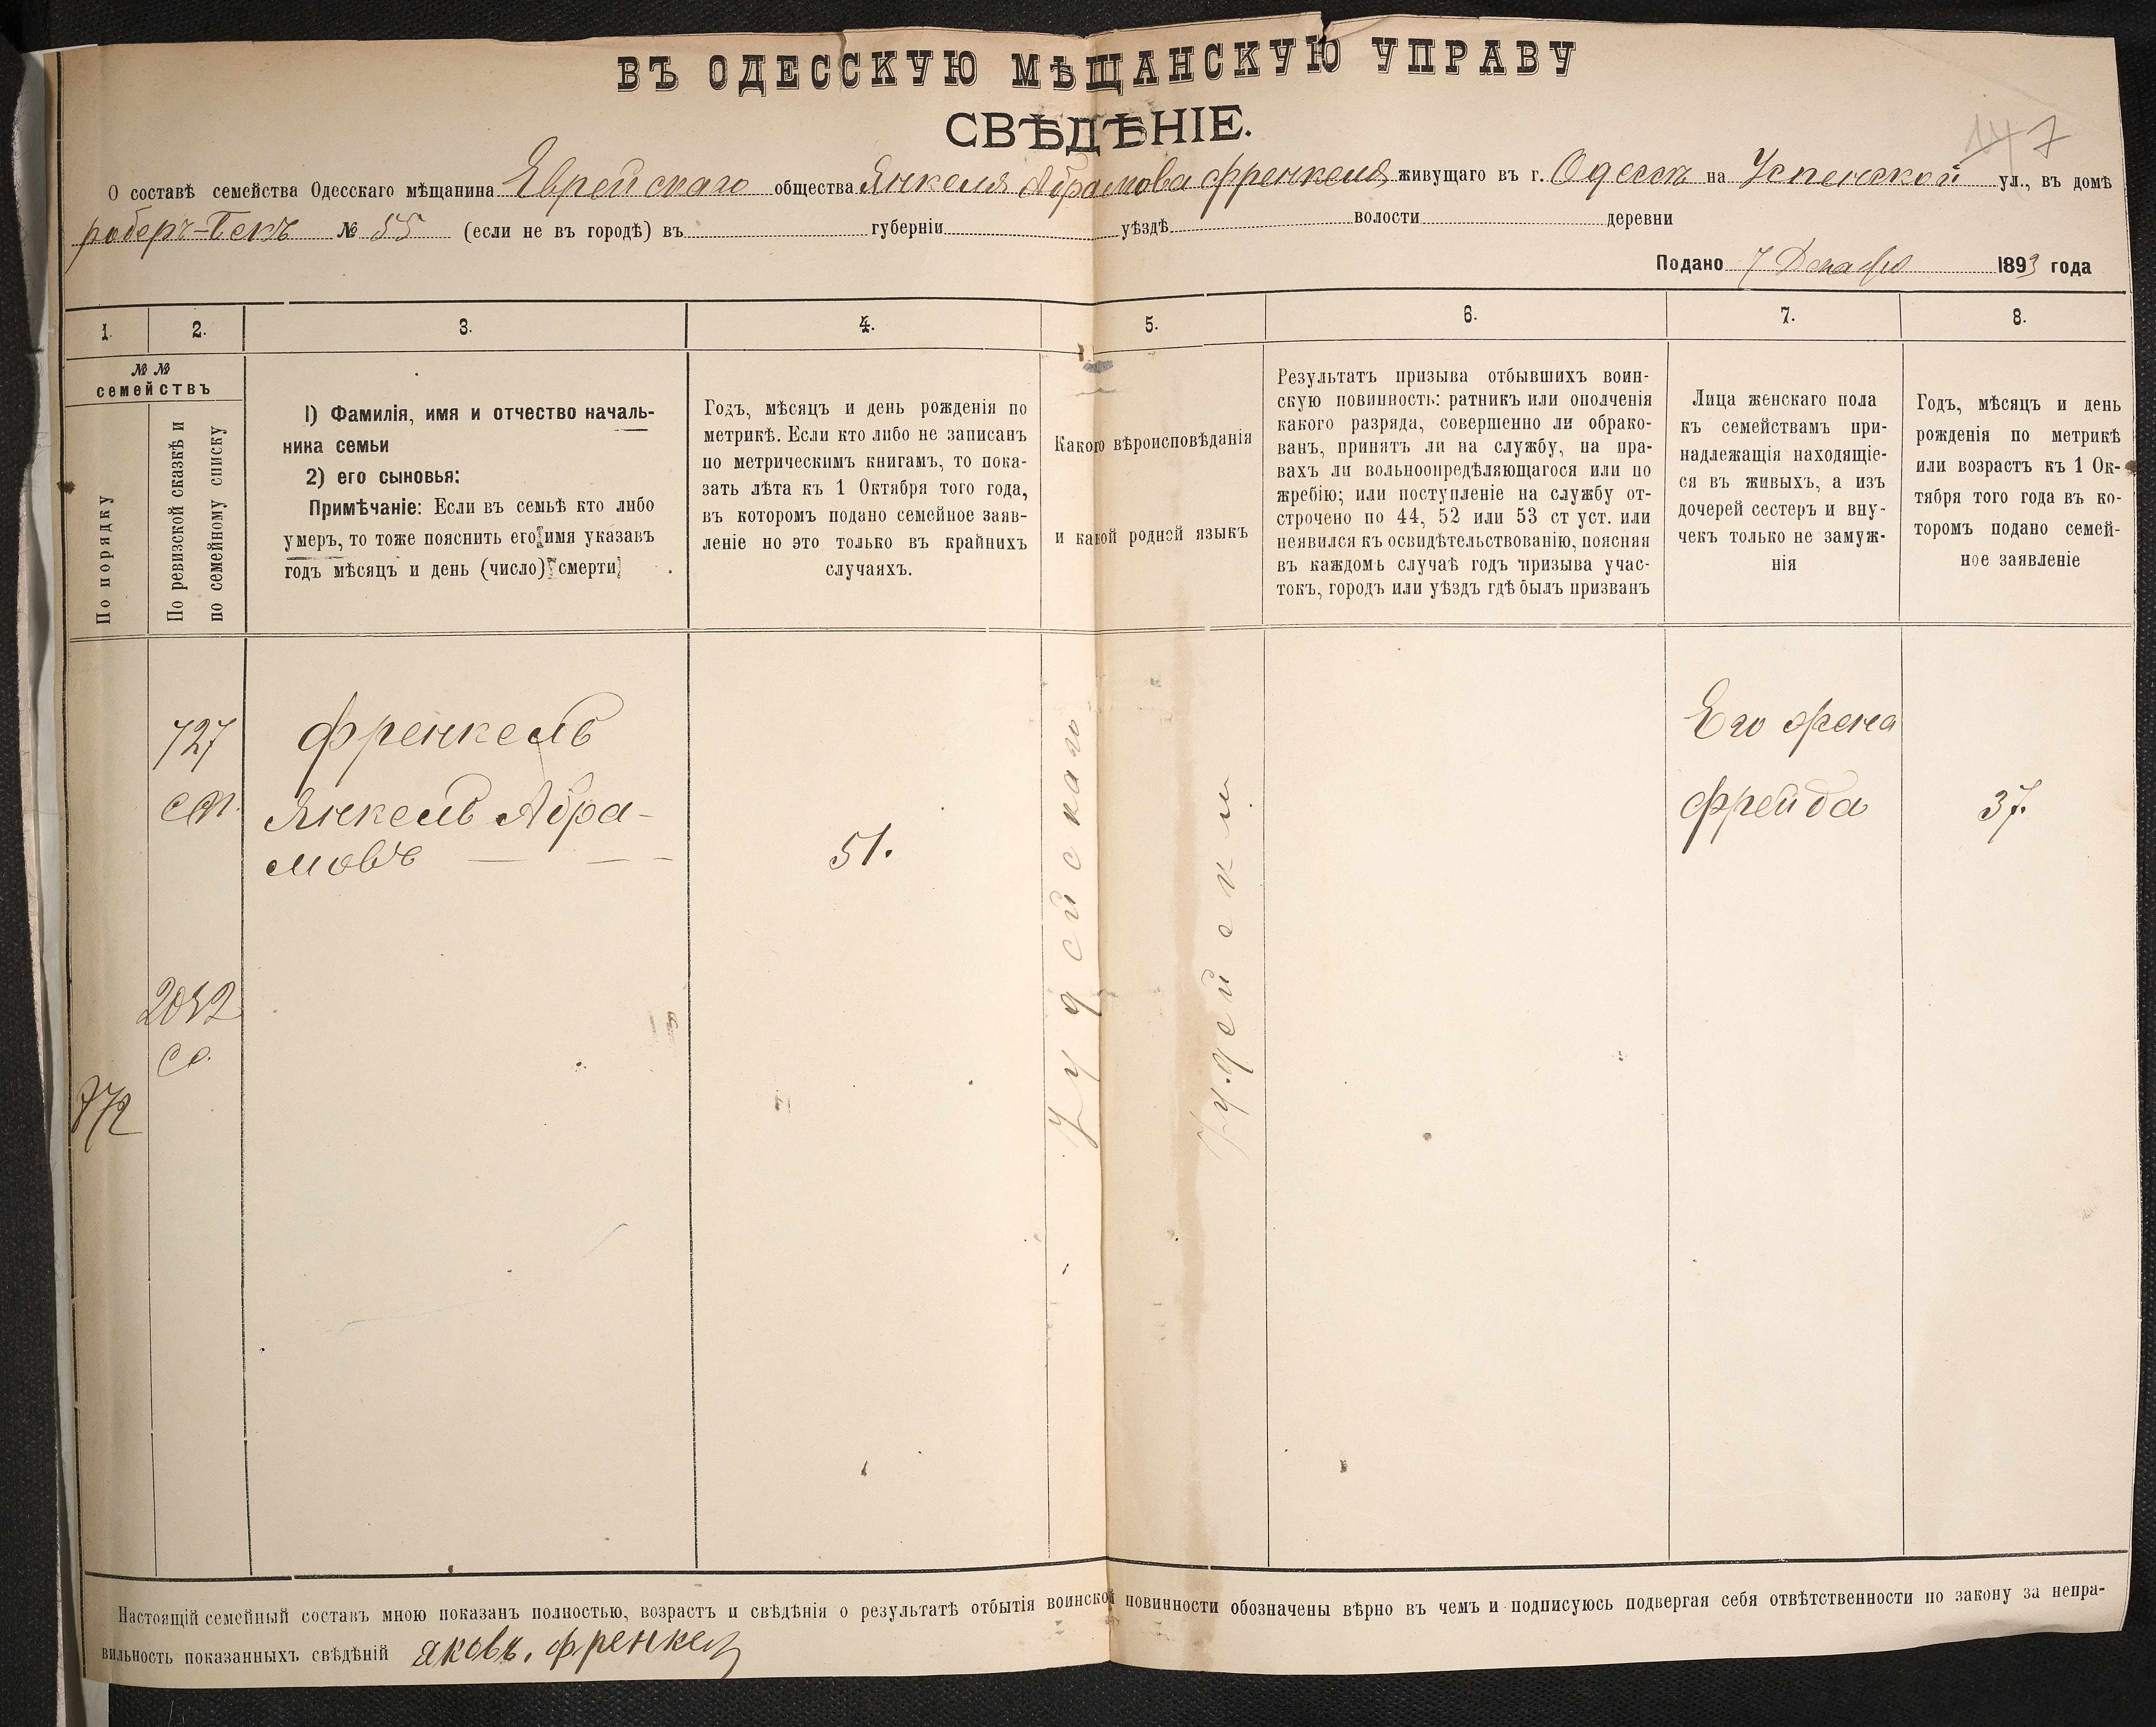 ВЪ ОДЕССКУЮ МѢЩАНСКУЮ УПРАВУ
СВѢДѢНІЕ.
147
О составѣ семейства Одесскаго мѣщанина Еврейскаго общества Янкеля Абрамова Френкеля живущаго въ г. Одессѣ на Успенской ул., въ домѣ
№ 55 (если не въ городѣ) въ губерніи уѣздѣ волости деревни
Подано 7 Декабря 1893 года
1. 2. 3. 4. 5. 6. 7. 8.
№ №
семействъ
По порядку
По ревизской сказкѣ и
по семейному списку
1) Фамилія, имя и отчество началь-
ника семьи
2) его сыновья:
Примѣчаніе: Если въ семьѣ кто либо
умеръ, то тоже пояснить его имя указавъ
годъ мѣсяцъ и день (число) смерти
Годъ, мѣсяцъ и день рожденія по
метрикѣ. Если кто либо не записанъ
по метрическимъ книгамъ, то пока-
зать лѣта къ 1 Октября того года,
въ которомъ подано семейное заяв-
леніе но это только въ крайнихъ
случаяхъ.
Какого вѣроисповѣданія
и какой родной языкъ
Результатъ призыва отбывшихъ воин-
скую повинность: ратникъ или ополченія
какого разряда, совершенно ли обрако-
ванъ, принятъ ли на службу, на пра-
вахъ ли вольноопредѣляющагося или по
жребію; или поступленіе на службу от-
строчено по 44, 52 или 53 ст уст. или
неявился къ освидѣтельствованію, поясняя
въ каждомъ случаѣ годъ призыва учас-
токъ, городъ или уѣздъ гдѣ былъ призванъ
Лица женскаго пола
къ семействамъ при-
надлежащія находящіе-
ся въ живыхъ, а изъ
дочерей сестеръ и вну-
чекъ только не замуж-
нія
Годъ, мѣсяцъ и день
рожденія по метрикѣ
или возрастъ къ 1 Ок-
тября того года въ ко-
торомъ подано семей-
ное заявленіе
727
Френкель
Янкель Абра-
мовъ
51.
Іудейскаго
Іудейски
Его жена
Фрейда
37.
Настоящій семейный составъ мною показанъ полностью, возрастъ и свѣдѣнія о результатѣ отбытія воинской повинности обозначены вѣрно въ чемъ и подписуюсь подвергая себя отвѣтственности по закону за непра-
вильность показанныхъ свѣдѣній яковъ. френкель